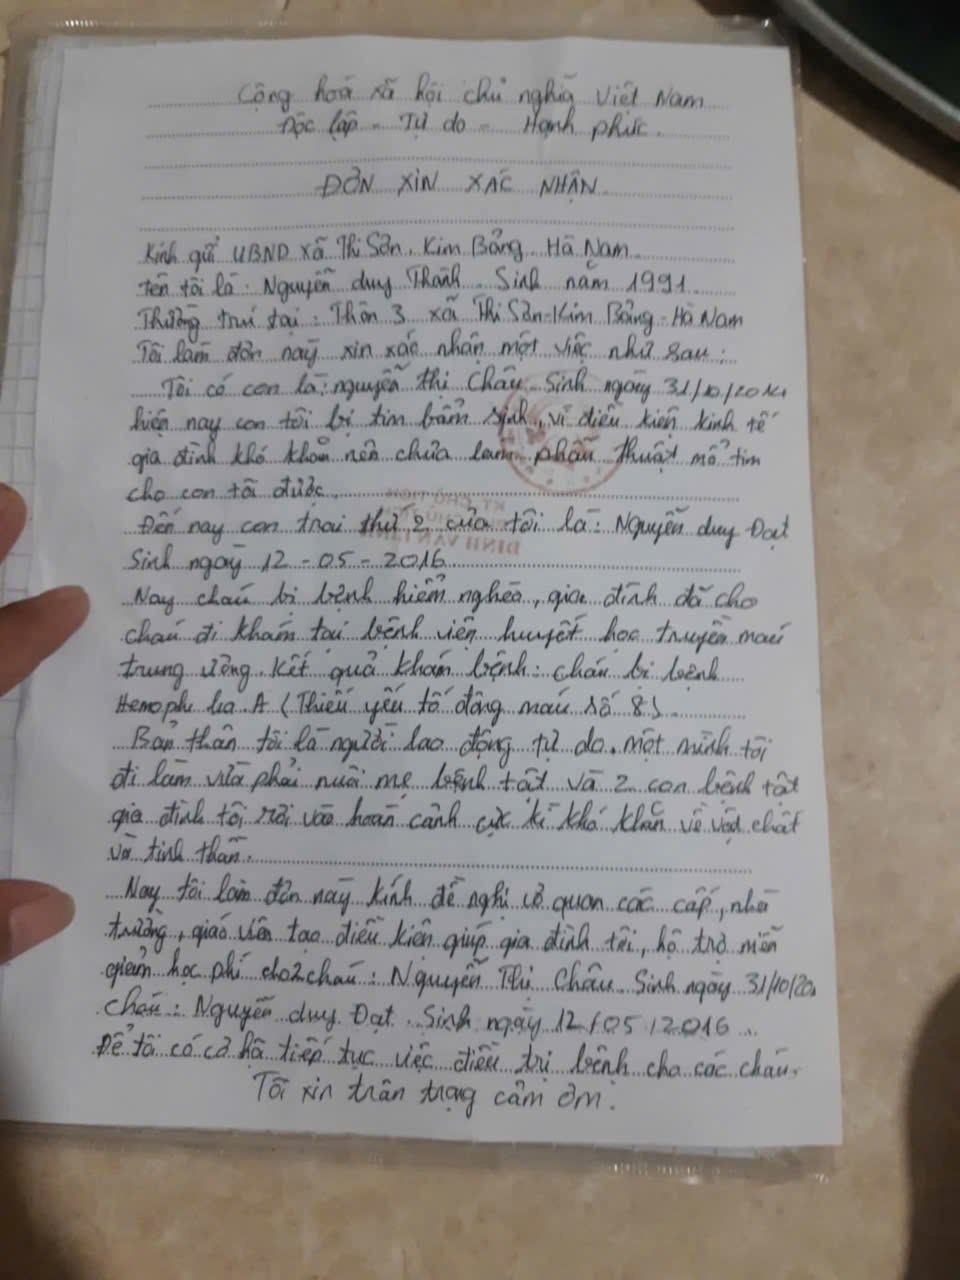 Cộng hoá xã hội chủ nghĩa Việt Nam
Độc lập - Tự do - Hạnh phúc.
ĐƠN XIN XÁC NHẬN
Kính gửi UBND xã Thi Sơn, Kim Bảng, Hà Nam
tên tôi là: Nguyễn duy Thành Sinh năm 1991
Thường trú tại: Thôn 3 xã Thi Sơn-Kim Bảng-Hà Nam
Tôi làm đơn này xin xác nhận một việc như sau:
Tôi có con là: nguyễn thị Châu Sinh ngày 31/10/2014
hiện nay con tôi bị tim bẩm sinh, vì điều kiện kinh tế
gia đình khó khăn nên chưa làm phẫu thuật mổ tim
cho con tôi được
Đến nay con trai thứ 2 của tôi là: Nguyễn duy Đạt
Sinh ngày 12-05-2016
Nay cháu bị bệnh hiểm nghèo, gia đình đã cho
cháu đi khám tại bệnh viện huyết học truyền máu
trung ương. kết quả khám bệnh: cháu bị bệnh
Hemophilia A (Thiếu yếu tố đông máu số 8)
Bản thân tôi là người lao động tự do. một mình tôi
đi làm vừa phải nuôi mẹ bệnh tật và 2 con bệnh tật
gia đình tôi rơi vào hoàn cảnh cực kì khó khăn về vật chất
và tinh thần.
Nay tôi làm đơn này kính đề nghị cơ quan các cấp, nhà
trường, giáo viên tạo điều kiện giúp gia đình tôi, hộ trợ miễn
giảm học phí cho 2 cháu: Nguyễn Thị Châu Sinh ngày 31/10/20
cháu: Nguyễn duy Đạt. Sinh ngày 12/05/2016
Để tôi có cơ hội tiếp tục việc điều trị bệnh cho các cháu.
Tôi xin trân trọng cảm ơn.